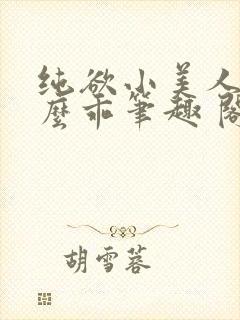 纯欲小美人
麼乖筆趣阁
胡雪蓉